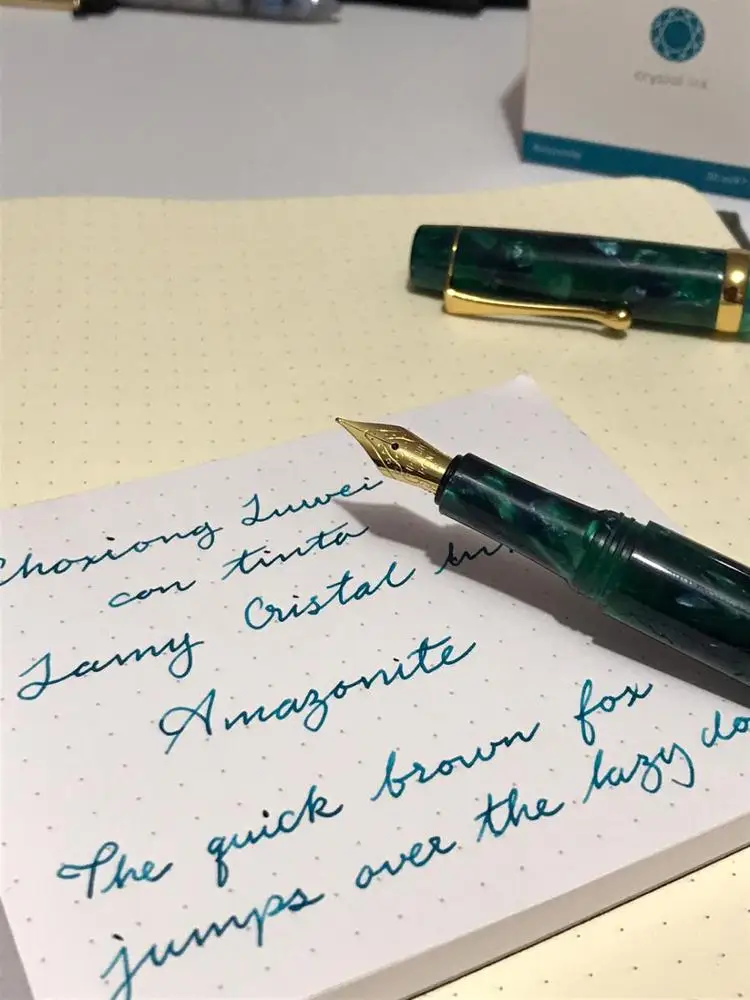 crystal ink
Amazonite
Choxiong Luwei
con tinta
Lamy Cristal
Amazonite
The quick brown fox
jumps over the lazy do